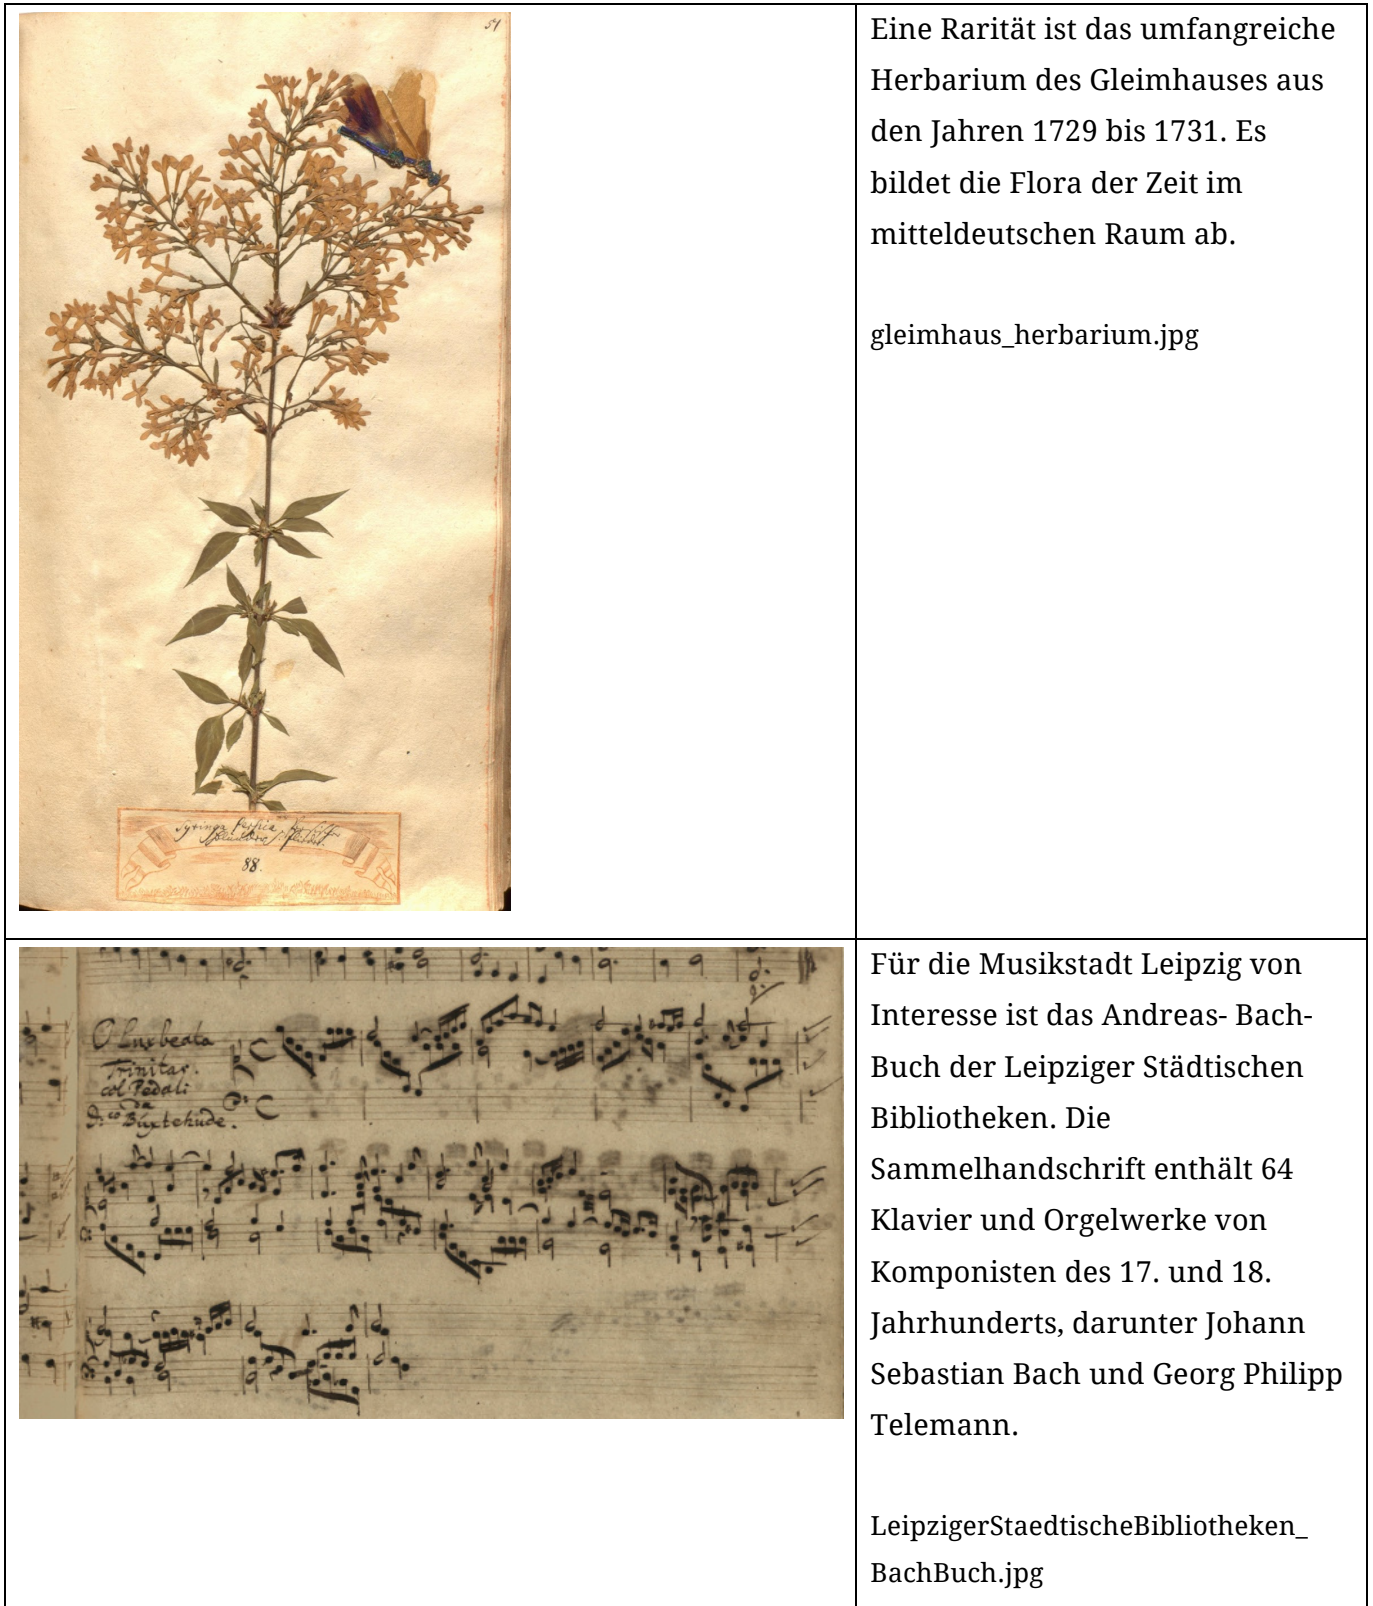 51
Eine Rarität ist das umfangreiche
Herbarium des Gleimhauses aus
den Jahren 1729 bis 1731. Es
bildet die Flora der Zeit im
mitteldeutschen Raum ab.
gleimhaus_herbarium.jpg
Syringa Persica
88.
O Lux beata
Trinitas.
col Pedali
da
Buxtehude.
Für die Musikstadt Leipzig von
Interesse ist das Andreas- Bach-
Buch der Leipziger Städtischen
Bibliotheken. Die
Sammelhandschrift enthält 64
Klavier und Orgelwerke von
Komponisten des 17. und 18.
Jahrhunderts, darunter Johann
Sebastian Bach und Georg Philipp
Telemann.
LeipzigerStaedtischeBibliotheken_
BachBuch.jpg